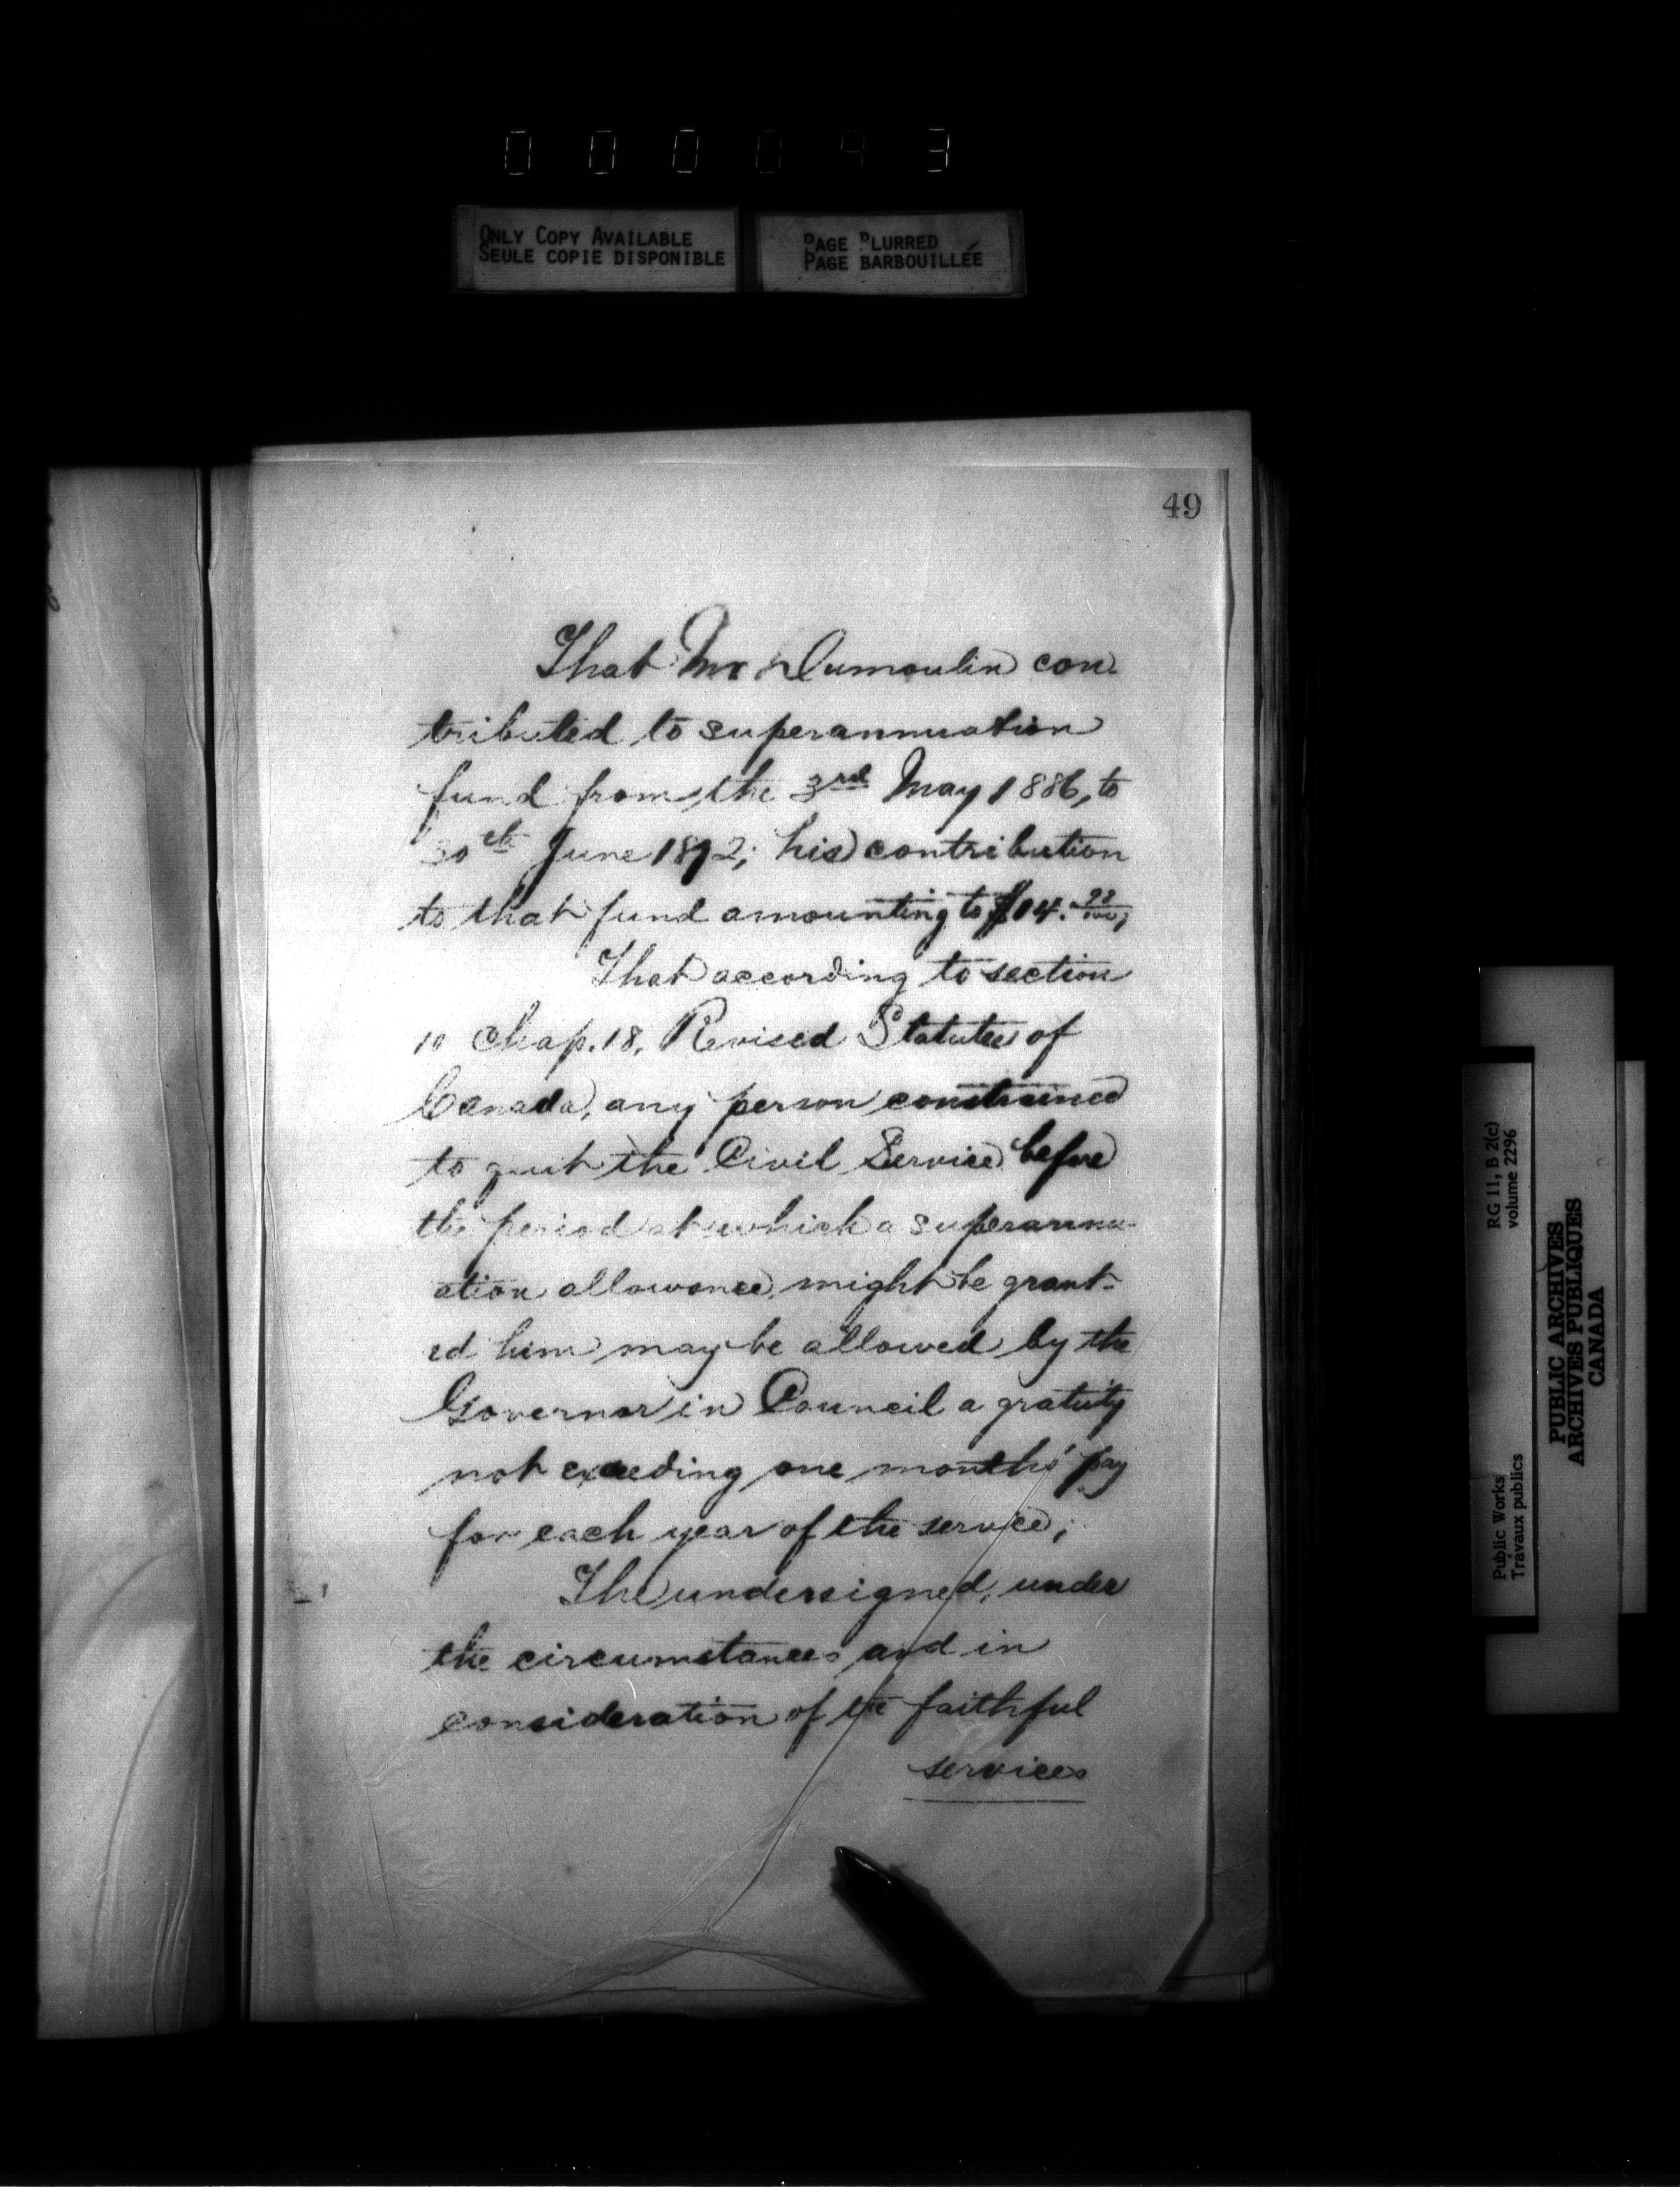 0 0 0 0 4 3
ONLY COPY AVAILABLE
SEULE COPIE DISPONIBLE
PAGE BLURRED
PAGE BARBOUILLÉE
49
That Mr Dumoulin con-
tributed to superannuation
fund from the 3rd May 1886, to
30th June 1892; his contribution
to that fund amounting to
That according to section
10 Chap. 18, Revised Statutes of
Canada, any person constrained
to quit the Civil Service before
the period at which a superannu-
ation allowance might be grant-
ed him may be allowed by the
Governor in Council a gratuity
not exceeding one months' pay
for each year of the service;
The undersigned, under
the circumstances and in
consideration of the faithful
services
Public Works
Travaux publics
RG 11, B 2(c)
volume 2296
PUBLIC ARCHIVES
ARCHIVES PUBLIQUES
CANADA